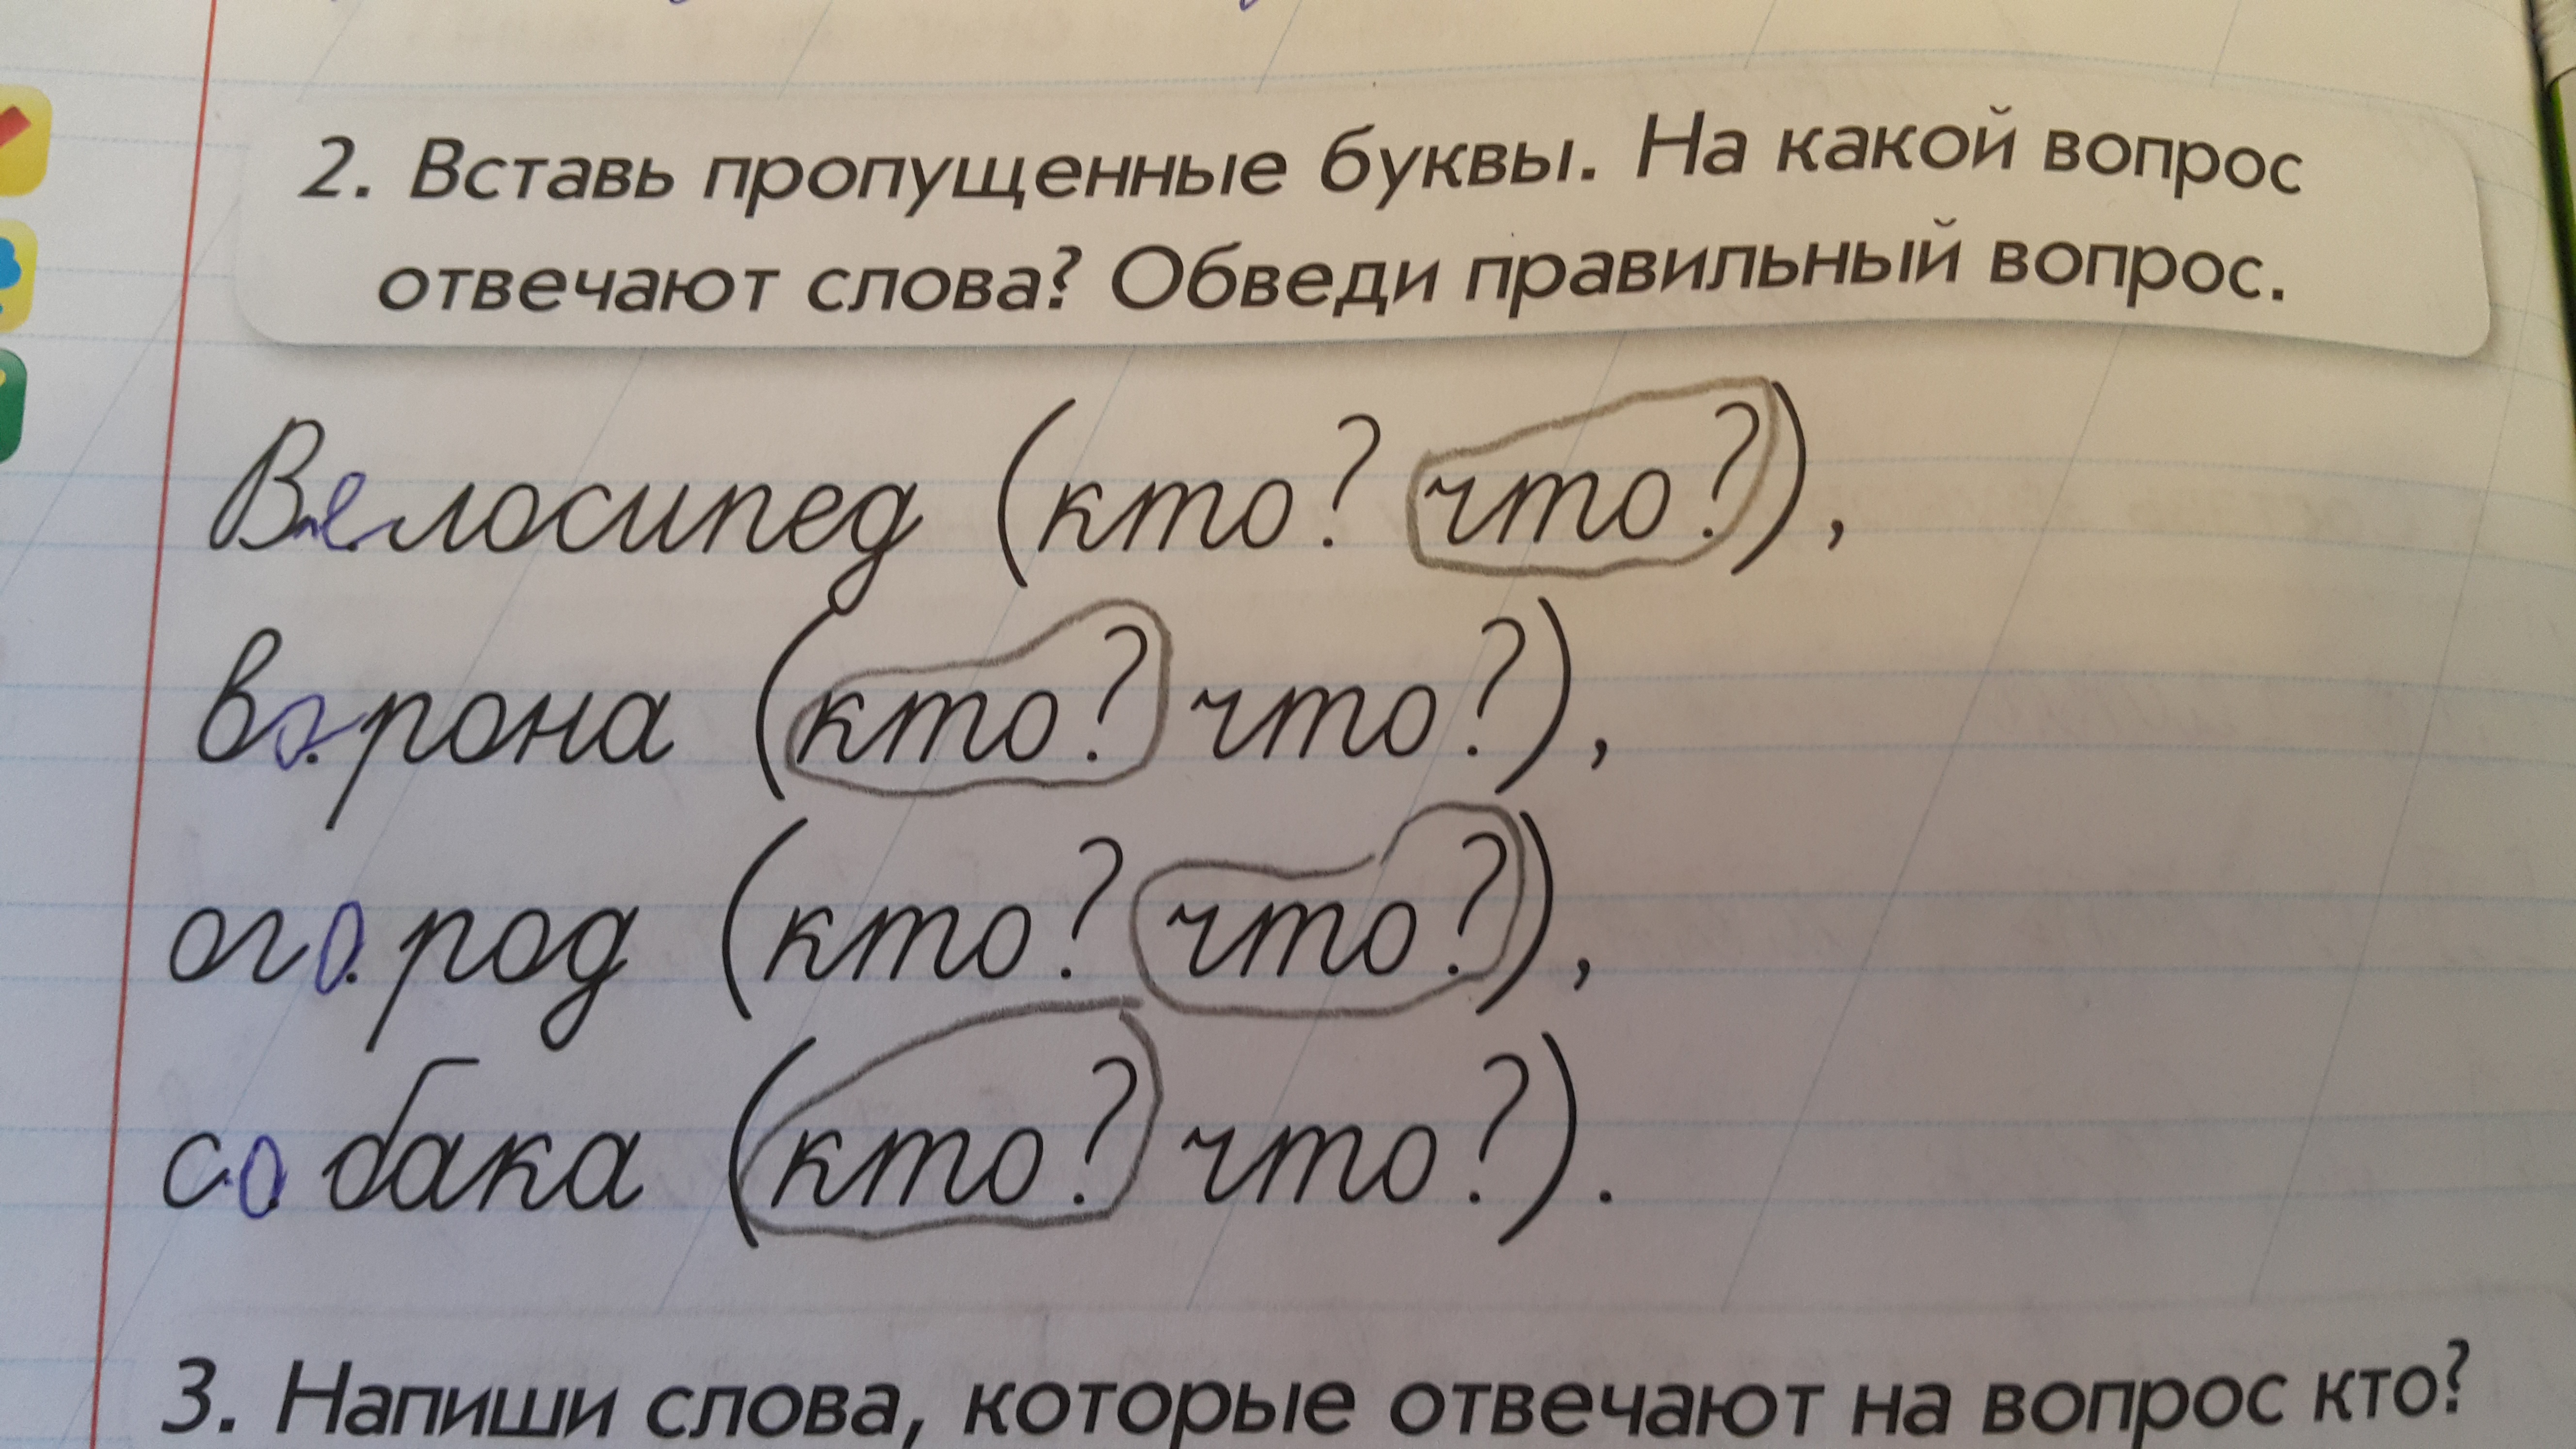 2. Вставь пропущенные буквы. На какой вопрос
отвечают слова? Обведи правильный вопрос.
Велосипед (кто? что?),
ворона (кто? что?),
огород (кто? что?),
собака (кто? что?).
3. Напиши слова, которые отвечают на вопрос кто?